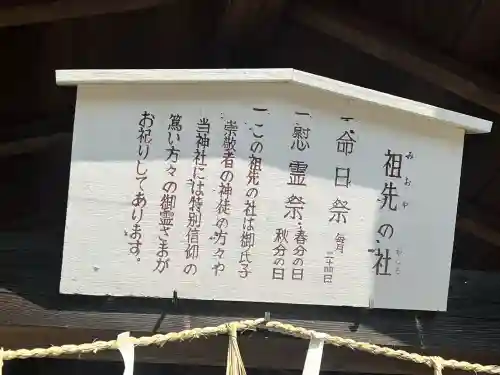 祖先の社
みおや
やしろ
一、命日祭 毎月二十四日
一、慰霊祭 春分の日
秋分の日
一、この祖先の社は御氏子
崇敬者の神徒の方々や
当神社には特別信仰の
篤い方々の御霊さまが
お祀りしてあります。